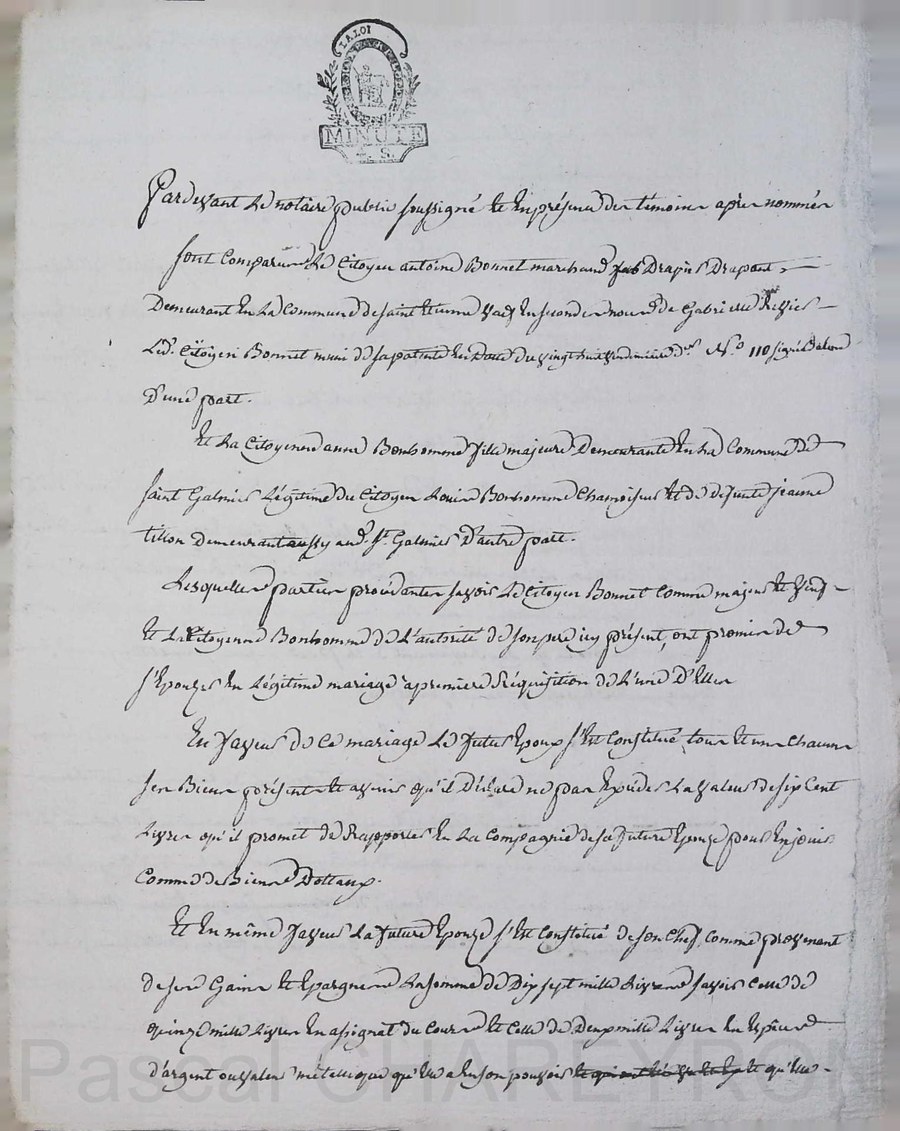 LA LOI
MINUTE
4. S.
Pardevant Le notaire public soussigné et En présence des temoins après nommés
sont Comparus Le Citoyen antoine Bonnet marchand Drapier Drapant
Demeurant En La Commune de saint Etienne veuf En secondes noces de Gabrielle
Led. Citoyen Bonnet muni de sa patente En Datte du vingt huit vendémiaire d.er N.o 110 signée
D'une part.
Et La Citoyenne anne Bonhomme fille majeure Demeurante En La Commune de
saint Galmier Légitime du Citoyen Louis Bonhomme Chamoiseur et de defunte jeanne
tillon demeurant aussy aud. St. Galmier D'autre part.
Lesquelles parties procédantes savoir Le Citoyen Bonnet Comme majeur et veuf
Et La Citoyenne Bonhomme de L'autorité de son pere icy présent, ont promis de
s'Epouzer En Légitime mariage a premiere Réquisition de L'une D'Elles
En faveur de Ce mariage Le futur Epoux s'Est Constitué tous et uns Chacuns
ses Biens présents et avenir qu'il Déclare ne pas Exceder La valeur de six Cent
Livres qu'il promet de Rapporter En La Compagnie de sa future Epouze pour En jouir
Comme de Biens Dottaux.
Et En même faveur La future Epouze s'Est Constitué de son Chef, Comme provenant
de ses Gains et Epargnes La somme de Dix sept mille Livres savoir Celle de
quinze mille Livres En assignat du Cours et Celle de Deux mille Livres En Espèces
d'argent ou valeur métallique qu'elle a En son pouvoir et qu'elle
Pascal CHAREYRON